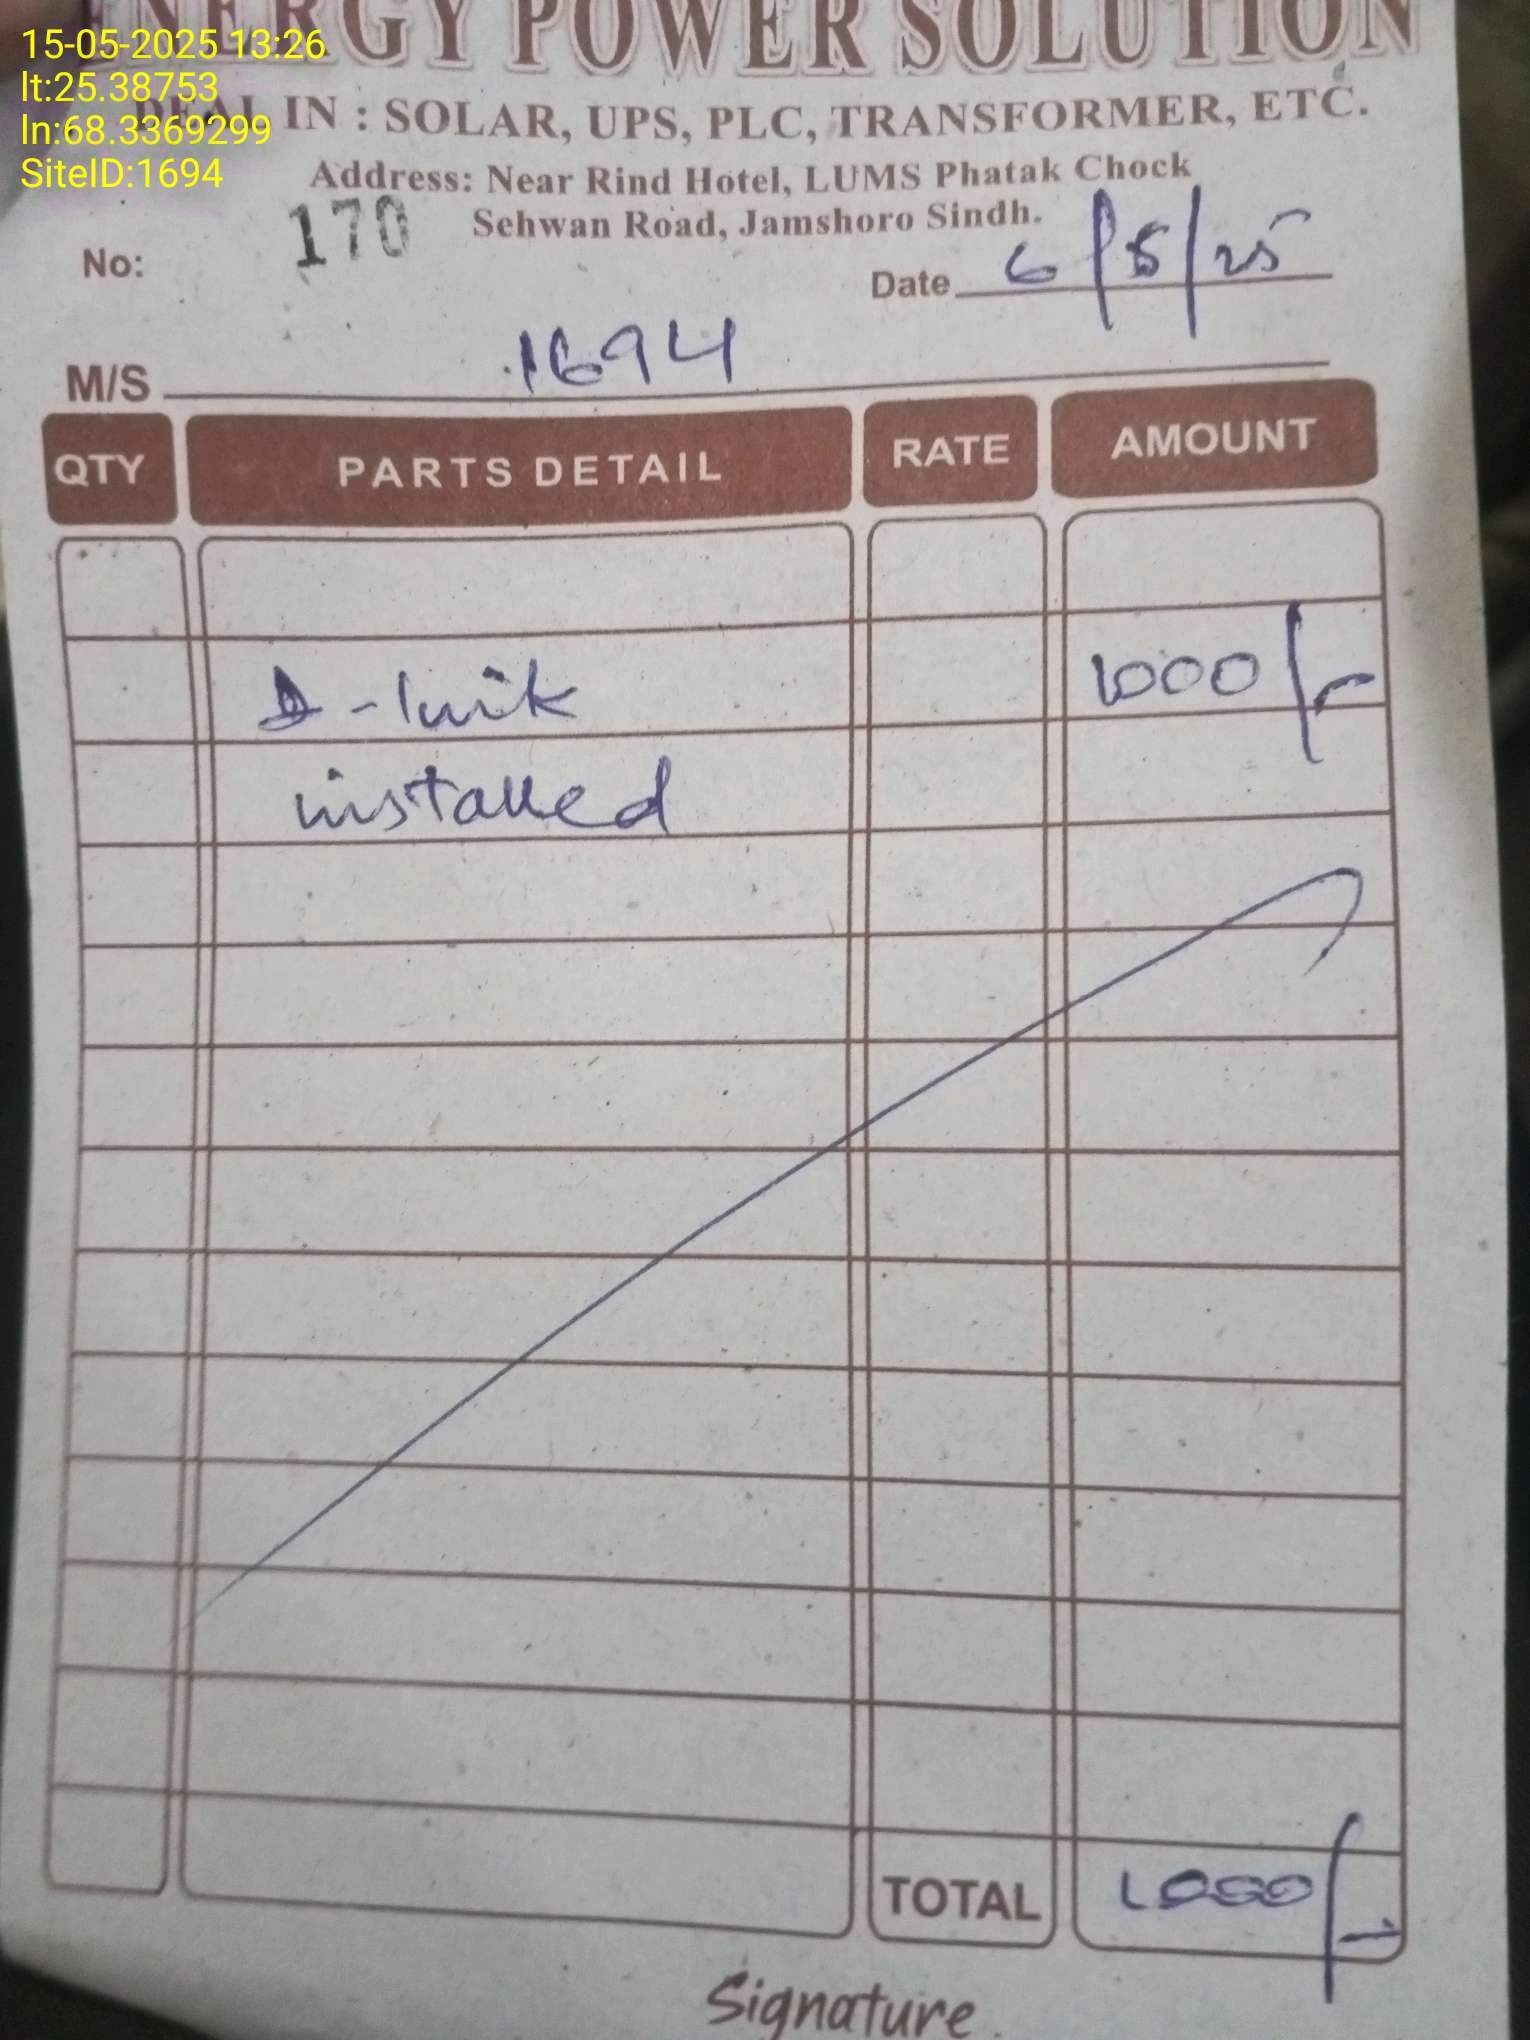 ENERGY POWER SOLUTION
15-05-2025 13:26
lt:25.38753
ln:68.3369299
SiteID:1694
DEAL IN : SOLAR, UPS, PLC, TRANSFORMER, ETC.
Address: Near Rind Hotel, LUMS Phatak Chock
Sehwan Road, Jamshoro Sindh.
No: 170
Date 6/5/25
M/S 1694
QTY PARTS DETAIL RATE AMOUNT
D-link 1000/-
installed
TOTAL 1000/-
Signature